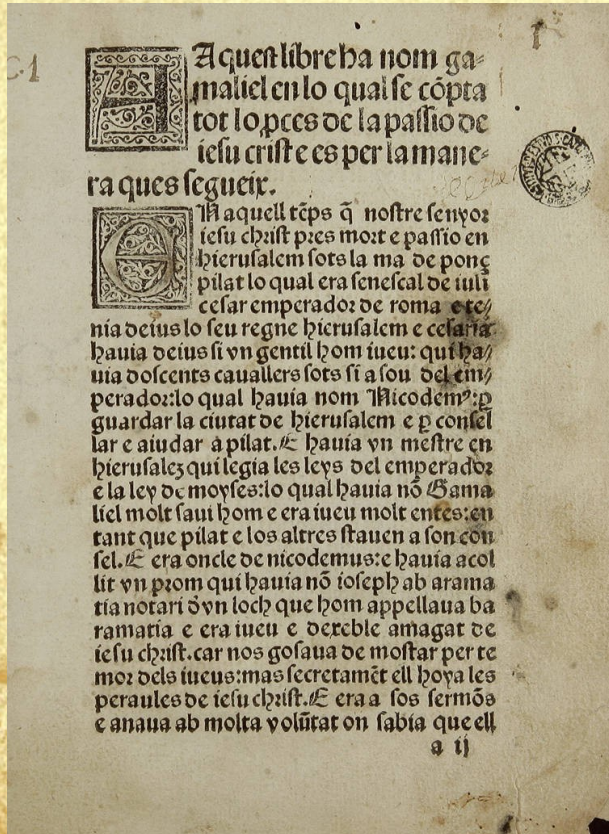 Aquest libre ha nom ga⸗
maliel en lo qual se cõpta
tot lo ꝓces de la passio de
iesu crist e es per la mane⸗
ra ques segueix.
EN aquell tẽps q̃ nostre senyor
iesu christ pres mort e passio en
hierusalem sots la ma de ponç
pilat lo qual era senescal de iuli
cesar emperador de roma e te⸗
nia deius lo seu regne hierusalem e cesaria
hauia deius si vn gentil hom iueu: qui ha⸗
uia doscents cauallers sots si a sou del em⸗
perador:lo qual hauia nom Nicodemꝰ:ꝑ
guardar la ciutat de hierusalem e ꝑ consel
lar e aiudar a pilat.E hauia vn mestre en
hierusalez qui legia les leys del emperador
e la ley de moyses:lo qual hauia nõ Gama
liel molt saui hom e era iueu molt entes:en
tant que pilat e los altres stauen a son con
sel.E era oncle de nicodemus:e hauia acol
lit vn prom qui hauia nõ ioseph ab arama
tia notari d̃vn loch que hom appellaua ba
ramatia e era iueu e dexeble amagat de
iesu christ.car nos gosaua de mostar per te
mor dels iueus:mas secretamẽt ell hoya les
peraules de iesu christ.E era a sos sermõs
e anaua ab molta volũtat on sabia que ell
a ij